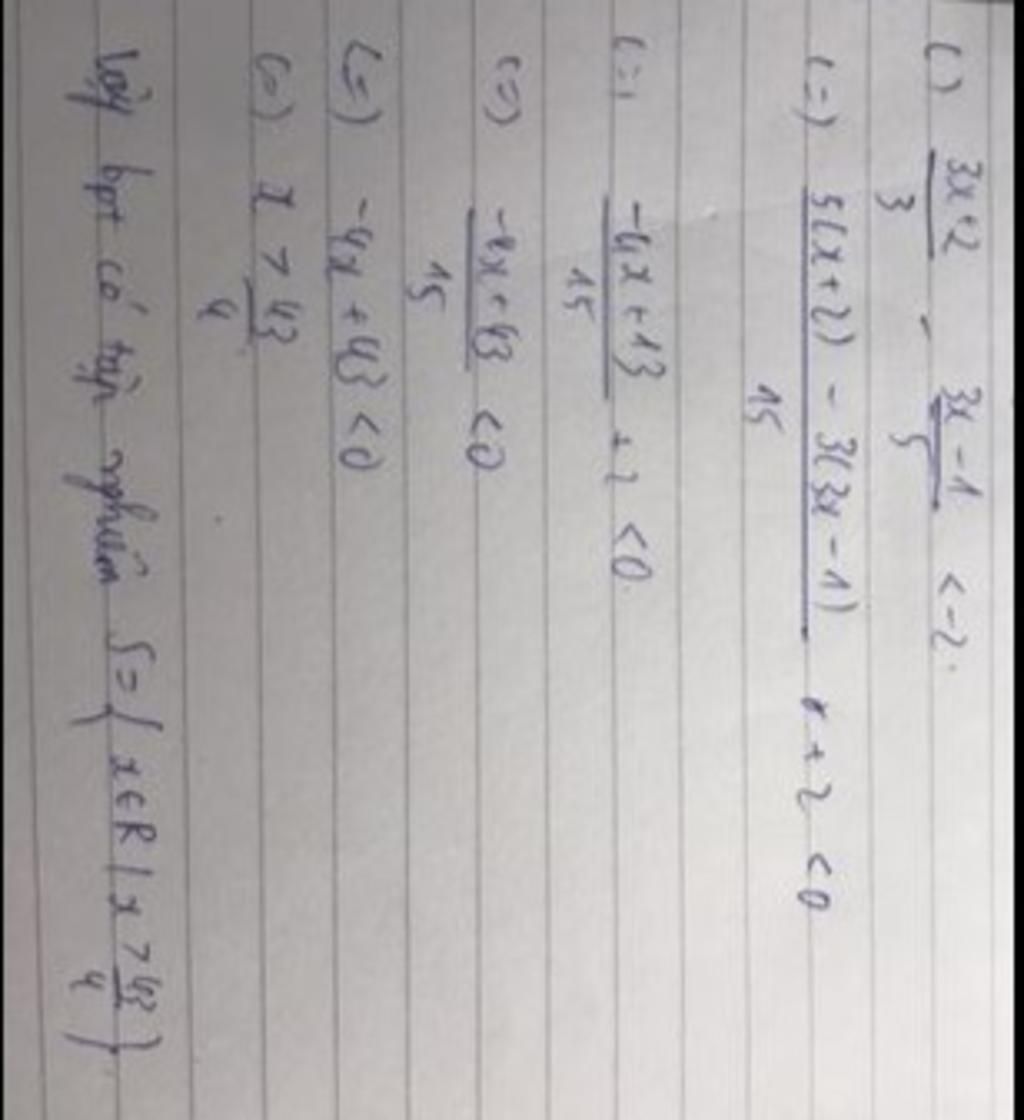 (=) \frac{3x+2}{3} - \frac{3x-1}{5} < -2.
(=) \frac{5(x+2) - 3(3x-1)}{15} + 2 < 0
(=) \frac{-4x+13}{15} + 2 < 0.
(=) \frac{-4x+43}{15} < 0
(=) -4x + 43 < 0
(=) x > \frac{43}{4}
Vậy bpt có tập nghiệm S = { x ∈ R | x > \frac{43}{4} }